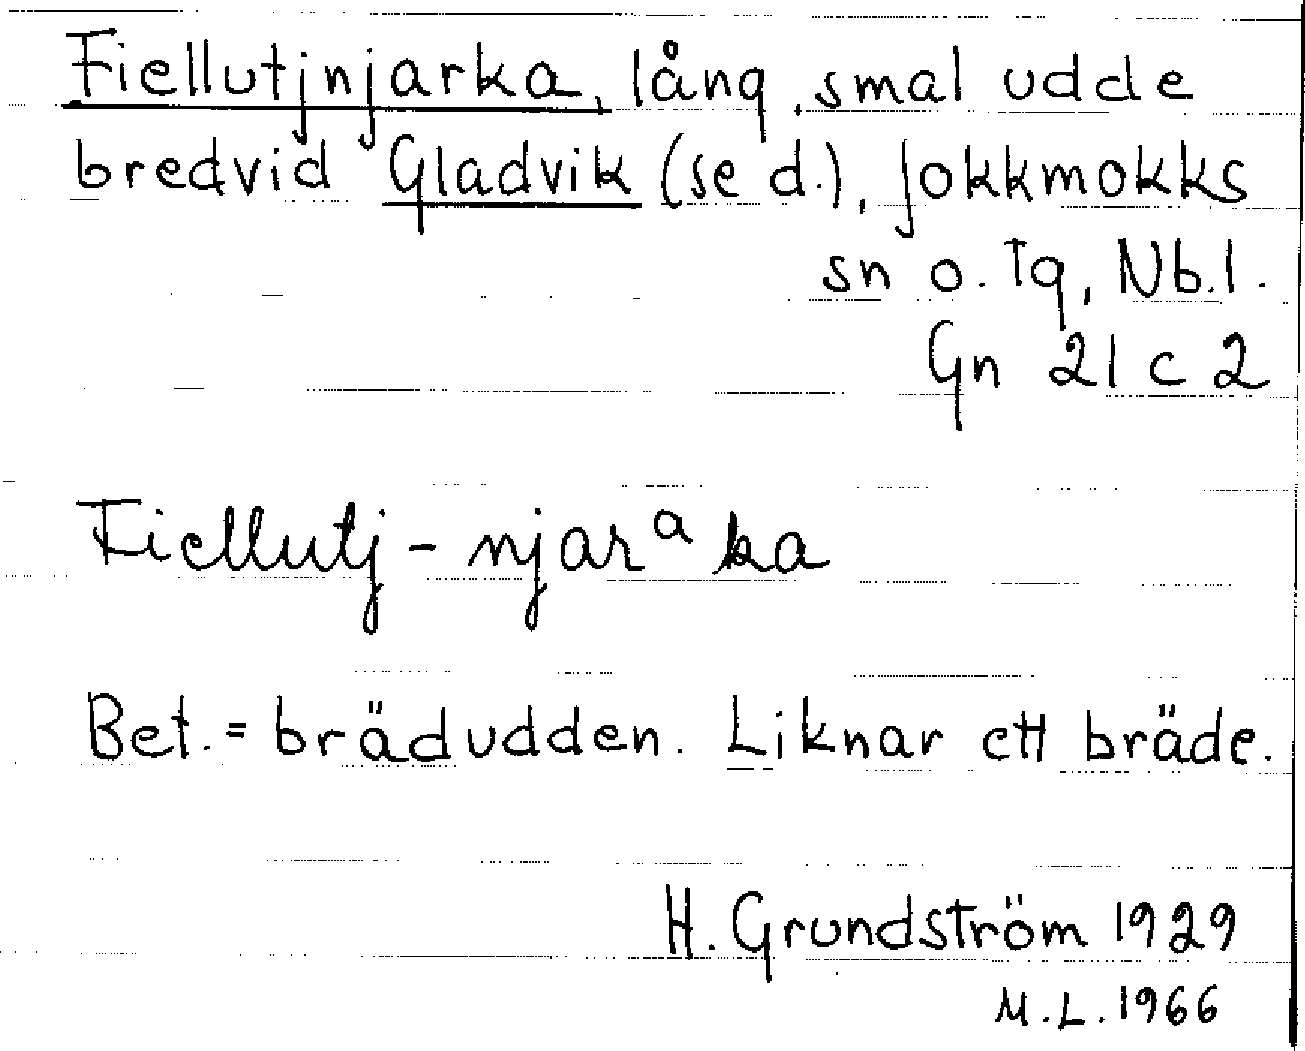 Fiellutjnjarka, lång, smal udde
bredvid Gladvik (se d.), Jokkmokks
sn o. Tg, Nb.l.
Gn 21 c 2
Fiellutj-njarᵃka
Bet. = brädudden. Liknar ett bräde.
H. Grundström 1929
M.L. 1966